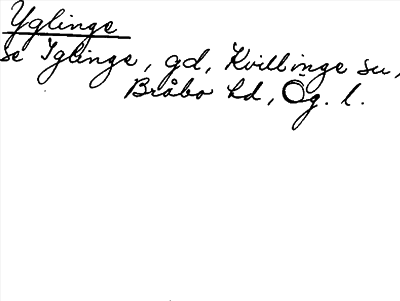 Yglinge
se Iglinge, gd, Kvillinge su,
Bråbo hd, Ög. l.